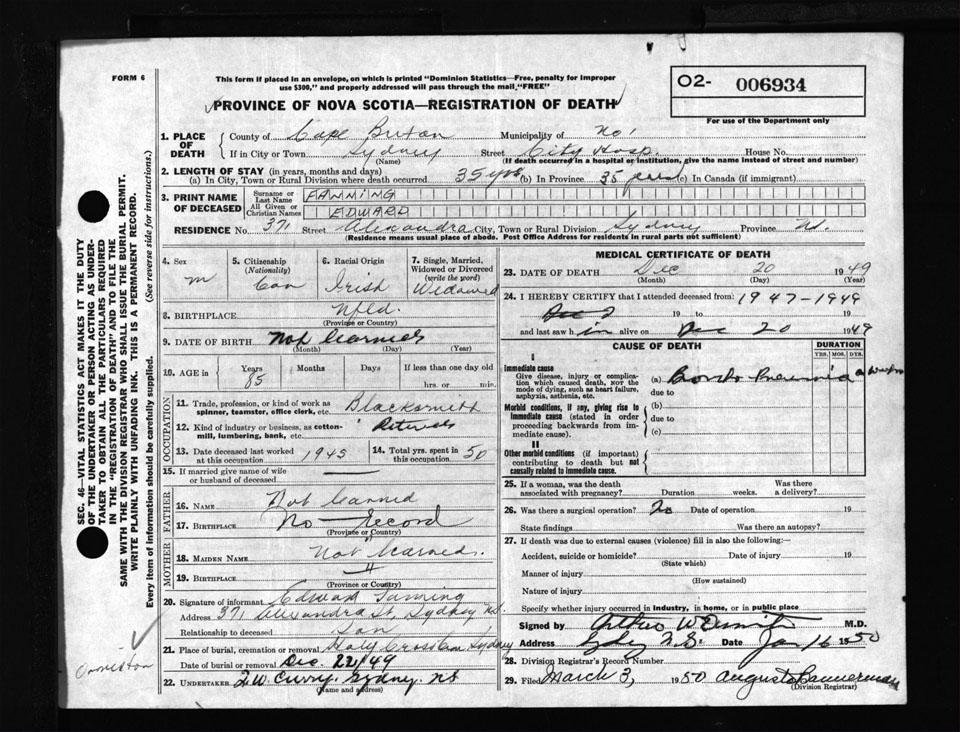 FORM 6
This form if placed in an envelope, on which is printed "Dominion Statistics—Free, penalty for improper
use $300," and properly addressed will pass through the mail, "FREE"
O2- 006934
For use of the Department only
PROVINCE OF NOVA SCOTIA—REGISTRATION OF DEATH
1. PLACE OF DEATH
County of Cape Breton Municipality of No!
If in City or Town Sydney Street City Hosp. House No.
(Name) (If death occurred in a hospital or institution, give the name instead of street and number)
2. LENGTH OF STAY (in years, months and days)
(a) In City, Town or Rural Division where death occurred 35 yrs (b) In Province 35 years (c) In Canada (if immigrant)
3. PRINT NAME OF DECEASED
Surname or Last Name FANNING
All Given or Christian Names EDWARD
RESIDENCE No. 371 Street Alexandra City, Town or Rural Division Sydney Province N.
(Residence means usual place of abode. Post Office Address for residents in rural parts not sufficient)
4. Sex m
5. Citizenship (Nationality) Can
6. Racial Origin Irish
7. Single, Married, Widowed or Divorced (write the word) Widowed
8. BIRTHPLACE Nfld.
(Province or Country)
9. DATE OF BIRTH Not learned
(Month) (Day) (Year)
10. AGE in Years 85 Months Days If less than one day old
hrs. or min.
OCCUPATION
11. Trade, profession, or kind of work as
spinner, teamster, office clerk, etc. Blacksmith
12. Kind of industry or business, as cotton-
mill, lumbering, bank, etc. Retired
13. Date deceased last worked at this occupation 1945
14. Total yrs. spent in this occupation 50
15. If married give name of wife
or husband of deceased
FATHER
16. NAME Not learned
17. BIRTHPLACE No Record
(Province or Country)
MOTHER
18. MAIDEN NAME Not learned.
19. BIRTHPLACE "
(Province or Country)
20. Signature of informant Edward Fanning
Address 371 Alexandra St. Sydney N.S.
Relationship to deceased Son
21. Place of burial, cremation or removal Holy Cross Cem Sydney
Date of burial or removal Dec. 22/49
22. UNDERTAKER Curry. Sydney. NS
(Name and address)
MEDICAL CERTIFICATE OF DEATH
23. DATE OF DEATH Dec 20 1949
(Month) (Day) (Year)
24. I HEREBY CERTIFY that I attended deceased from: 1947-1949
Dec 2 19 to 19
and last saw h im alive on Dec 20 1949
CAUSE OF DEATH
DURATION
YRS. MOS. DYS.
I
Immediate cause
Give disease, injury or complica-
tion which caused death, NOT the
mode of dying, such as heart failure,
asphyxia, asthenia, etc.
(a) Pneumonia
due to
Morbid conditions, if any, giving rise to
immediate cause (stated in order
proceeding backwards from im-
mediate cause).
(b)
due to
(c)
II
Other morbid conditions (if important)
contributing to death but not
causally related to immediate cause.
25. If a woman, was the death
associated with pregnancy? Duration weeks. Was there
a delivery?
26. Was there a surgical operation? No Date of operation 19
State findings Was there an autopsy?
27. If death was due to external causes (violence) fill in also the following:—
Accident, suicide or homicide? Date of injury 19
(State which)
Manner of injury
(How sustained)
Nature of injury
Specify whether injury occurred in industry, in home, or in public place
Signed by Arthur W M.D.
Address Sydney N.S. Date Jan 16 1950
28. Division Registrar's Record Number
29. Filed March 3, 1950 Augusta Bannerman
(Division Registrar)
SEC. 46—VITAL STATISTICS ACT MAKES IT THE DUTY
OF THE UNDERTAKER OR PERSON ACTING AS UNDER-
TAKER TO OBTAIN ALL THE PARTICULARS REQUIRED
IN THE "REGISTRATION OF DEATH" AND TO FILE THE
SAME WITH THE DIVISION REGISTRAR WHO SHALL ISSUE THE BURIAL PERMIT.
WRITE PLAINLY WITH UNFADING INK. THIS IS A PERMANENT RECORD.
Every item of information should be carefully supplied. (See reverse side for instructions.)